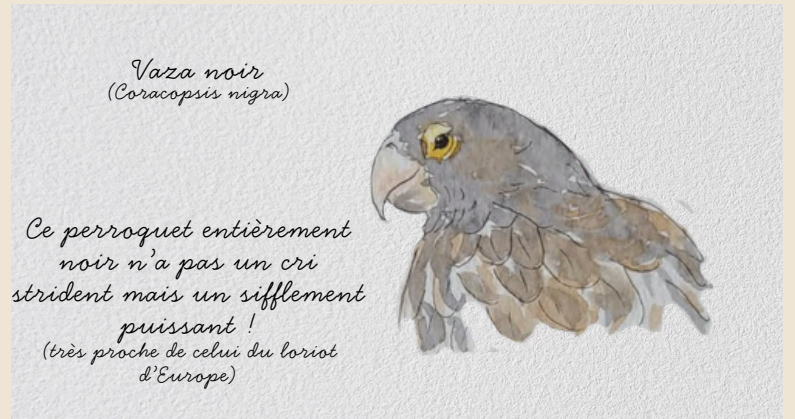 Vaza noir
(Coracopsis nigra)
Ce perroquet entièrement
noir n'a pas un cri
strident mais un sifflement
puissant !
(très proche de celui du loriot
d'Europe)